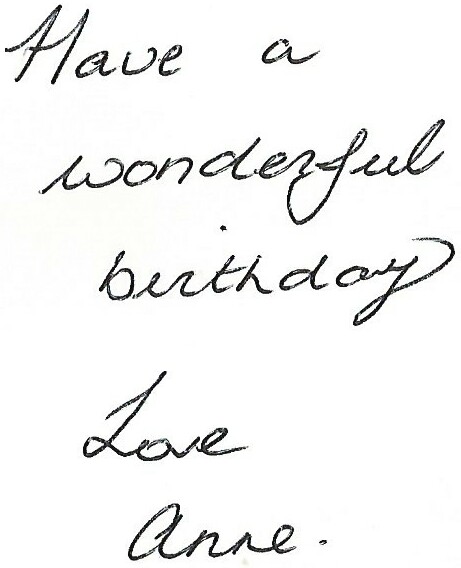 Have a
wonderful
birthday
Love
Anne.